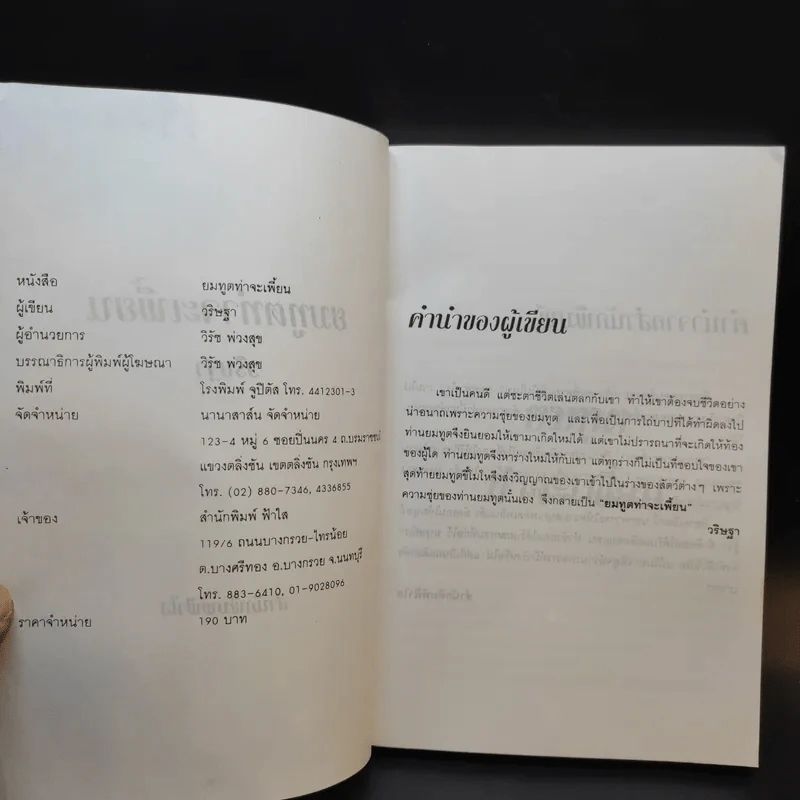 หนังสือ ยมทูตท่าจะเพี้ยน
ผู้เขียน วริษฐา
ผู้อำนวยการ วิรัช พ่วงสุข
บรรณาธิการผู้พิมพ์ผู้โฆษณา วิรัช พ่วงสุข
พิมพ์ที่ โรงพิมพ์ จูปิตัส โทร. 4412301-3
จัดจำหน่าย นานาสาส์น จัดจำหน่าย
123-4 หมู่ 6 ซอยปิ่นนคร 4 ถ.บรมราชชนนี
แขวงตลิ่งชัน เขตตลิ่งชัน กรุงเทพฯ
โทร. (02) 880-7346, 4336855
เจ้าของ สำนักพิมพ์ ฟ้าใส
119/6 ถนนบางกรวย-ไทรน้อย
ต.บางศรีทอง อ.บางกรวย จ.นนทบุรี
โทร. 883-6410, 01-9028096
ราคาจำหน่าย 190 บาท
คำนำของผู้เขียน
เขาเป็นคนดี แต่ชะตาชีวิตเล่นตลกกับเขา ทำให้เขาต้องจบชีวิตอย่าง
น่าอนาถเพราะความซุ่ยของยมทูต และเพื่อเป็นการไถ่บาปที่ได้ทำผิดลงไป
ท่านยมทูตจึงยินยอมให้เขามาเกิดใหม่ได้ แต่เขาไม่ปรารถนาที่จะเกิดให้ท้อง
ของผู้ใด ท่านยมทูตจึงหาร่างใหม่ให้กับเขา แต่ทุกร่างก็ไม่เป็นที่ชอบใจของเขา
สุดท้ายยมทูตขี้โมโหจึงส่งวิญญาณของเขาเข้าไปในร่างของสัตว์ต่างๆ เพราะ
ความซุ่ยของท่านยมทูตนั้นเอง จึงกลายเป็น "ยมทูตท่าจะเพี้ยน"
วริษฐา